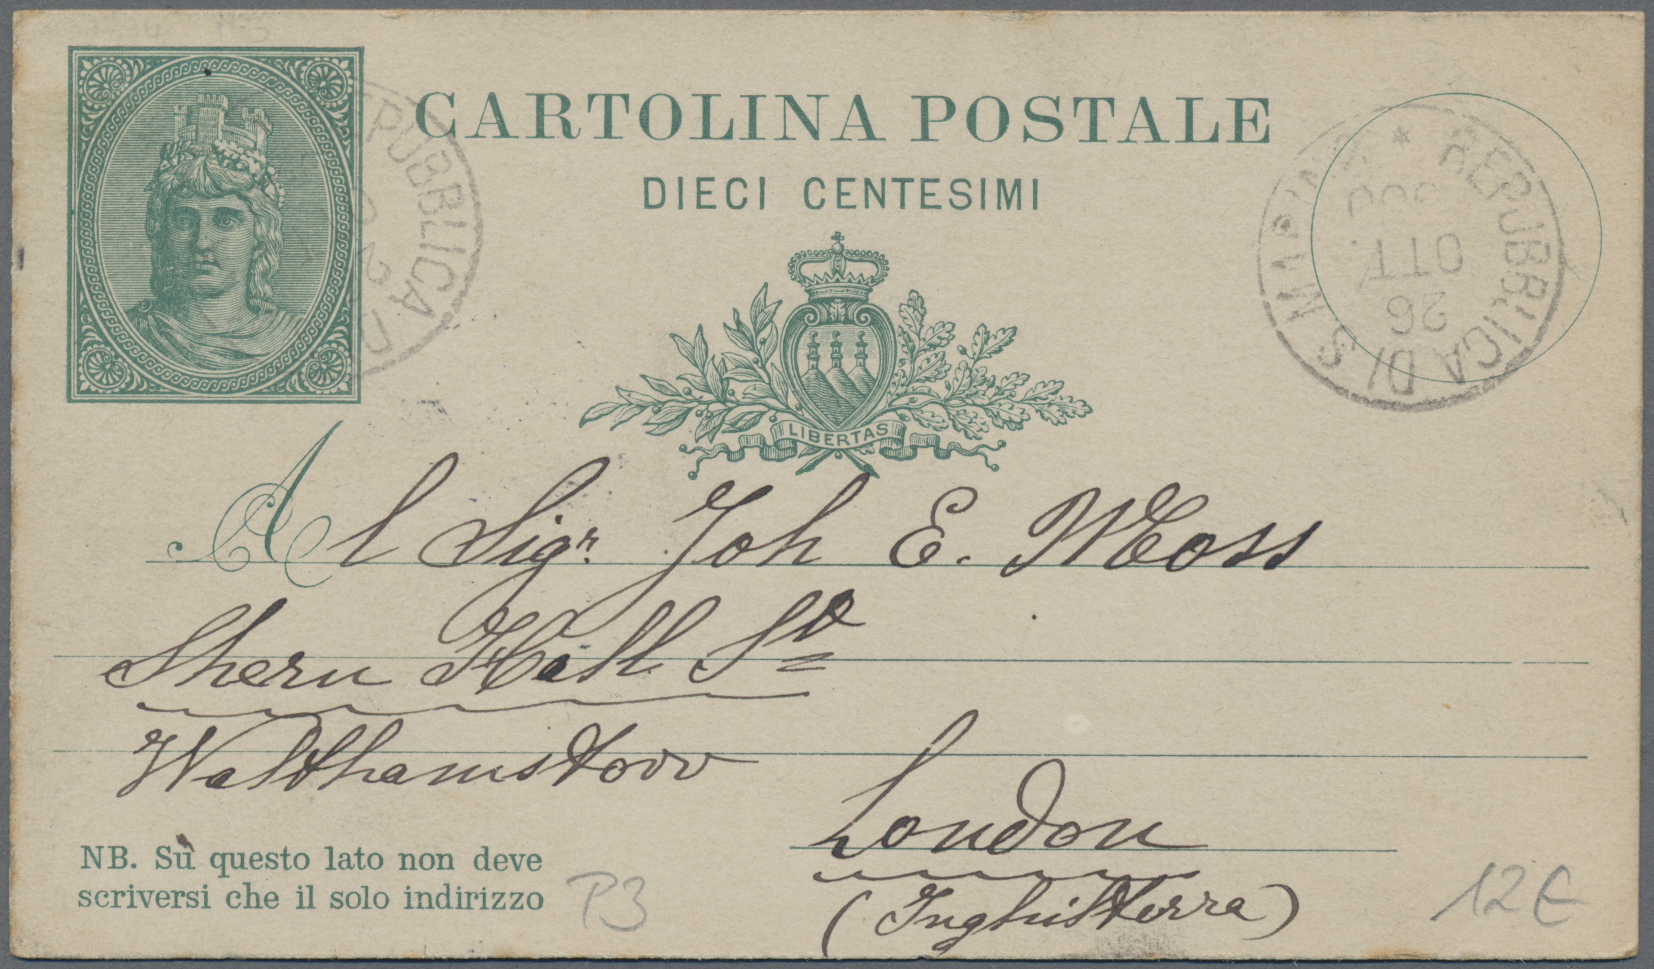 CARTOLINA POSTALE
DIECI CENTESIMI
REPUBBLICA D
REPUBBLICA DI S. MARINO *
26
OTT.
900
LIBERTAS
Al Sigr. Joh E. Moss
Shern Hall St
Walthamstow
London
(Inghilterra)
NB. Su questo lato non deve
scriversi che il solo indirizzo
P3
12€